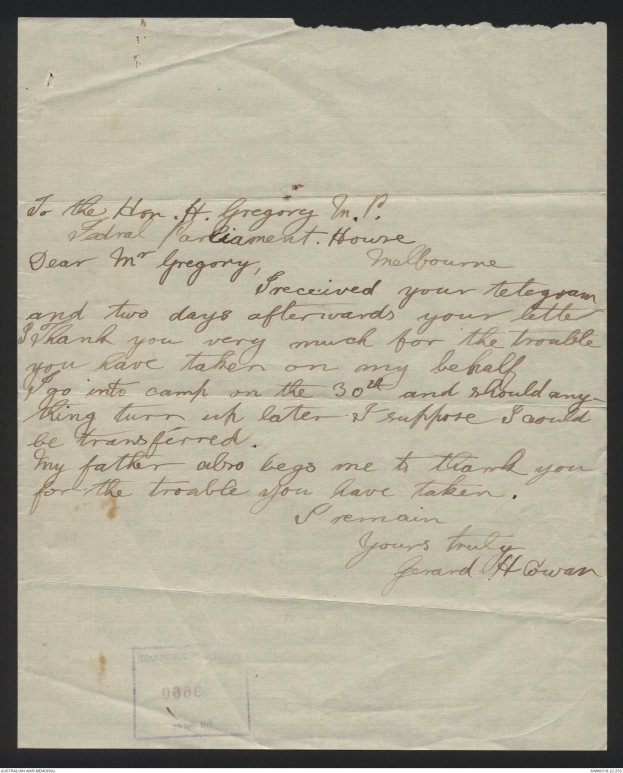 To the Hon. H. Gregory M. P.
Fedral Parliament. House
Melbourne
Dear Mr Gregory,
I received your telegram
and two days afterwards your letter
I Thank you very much for the trouble
you have taken on my behalf
I go into camp on the 30th and should any-
thing turn up later I suppose I could
be transferred.
My father also begs me to thank you
for the trouble you have taken.
I remain
Yours truly
Gerard H Cowan
9660
AUSTRALIAN WAR MEMORIAL